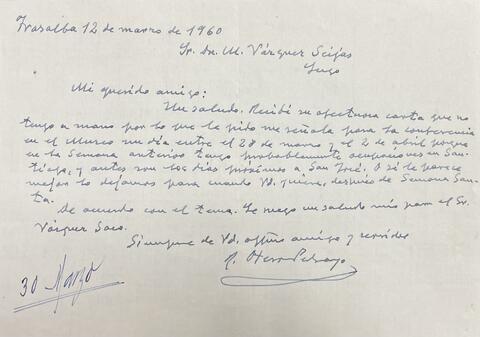 Trasalba 12 de marzo de 1960
Sr. Dn. M. Vázquez Seijas
Lugo
Mi querido amigo:
Un saludo. Recibí su afectuosa carta que no
tengo a mano por lo que le pido me señale para la conferencia
en el Museo un día entre el 28 de marzo y el 2 de abril porque
en la Semana anterior tengo probablemente ocupaciones en San-
tiago, y antes son los días próximos a San José. O si le parece
mejor lo dejamos para cuando Vd. quiera, después de Semana San-
ta.
De acuerdo con el tema. Le ruego un saludo mío para el Sr.
Vázquez Saco.
Siempre de Vd. affmo amigo y servidor
R. Otero Pedrayo
30 Marzo